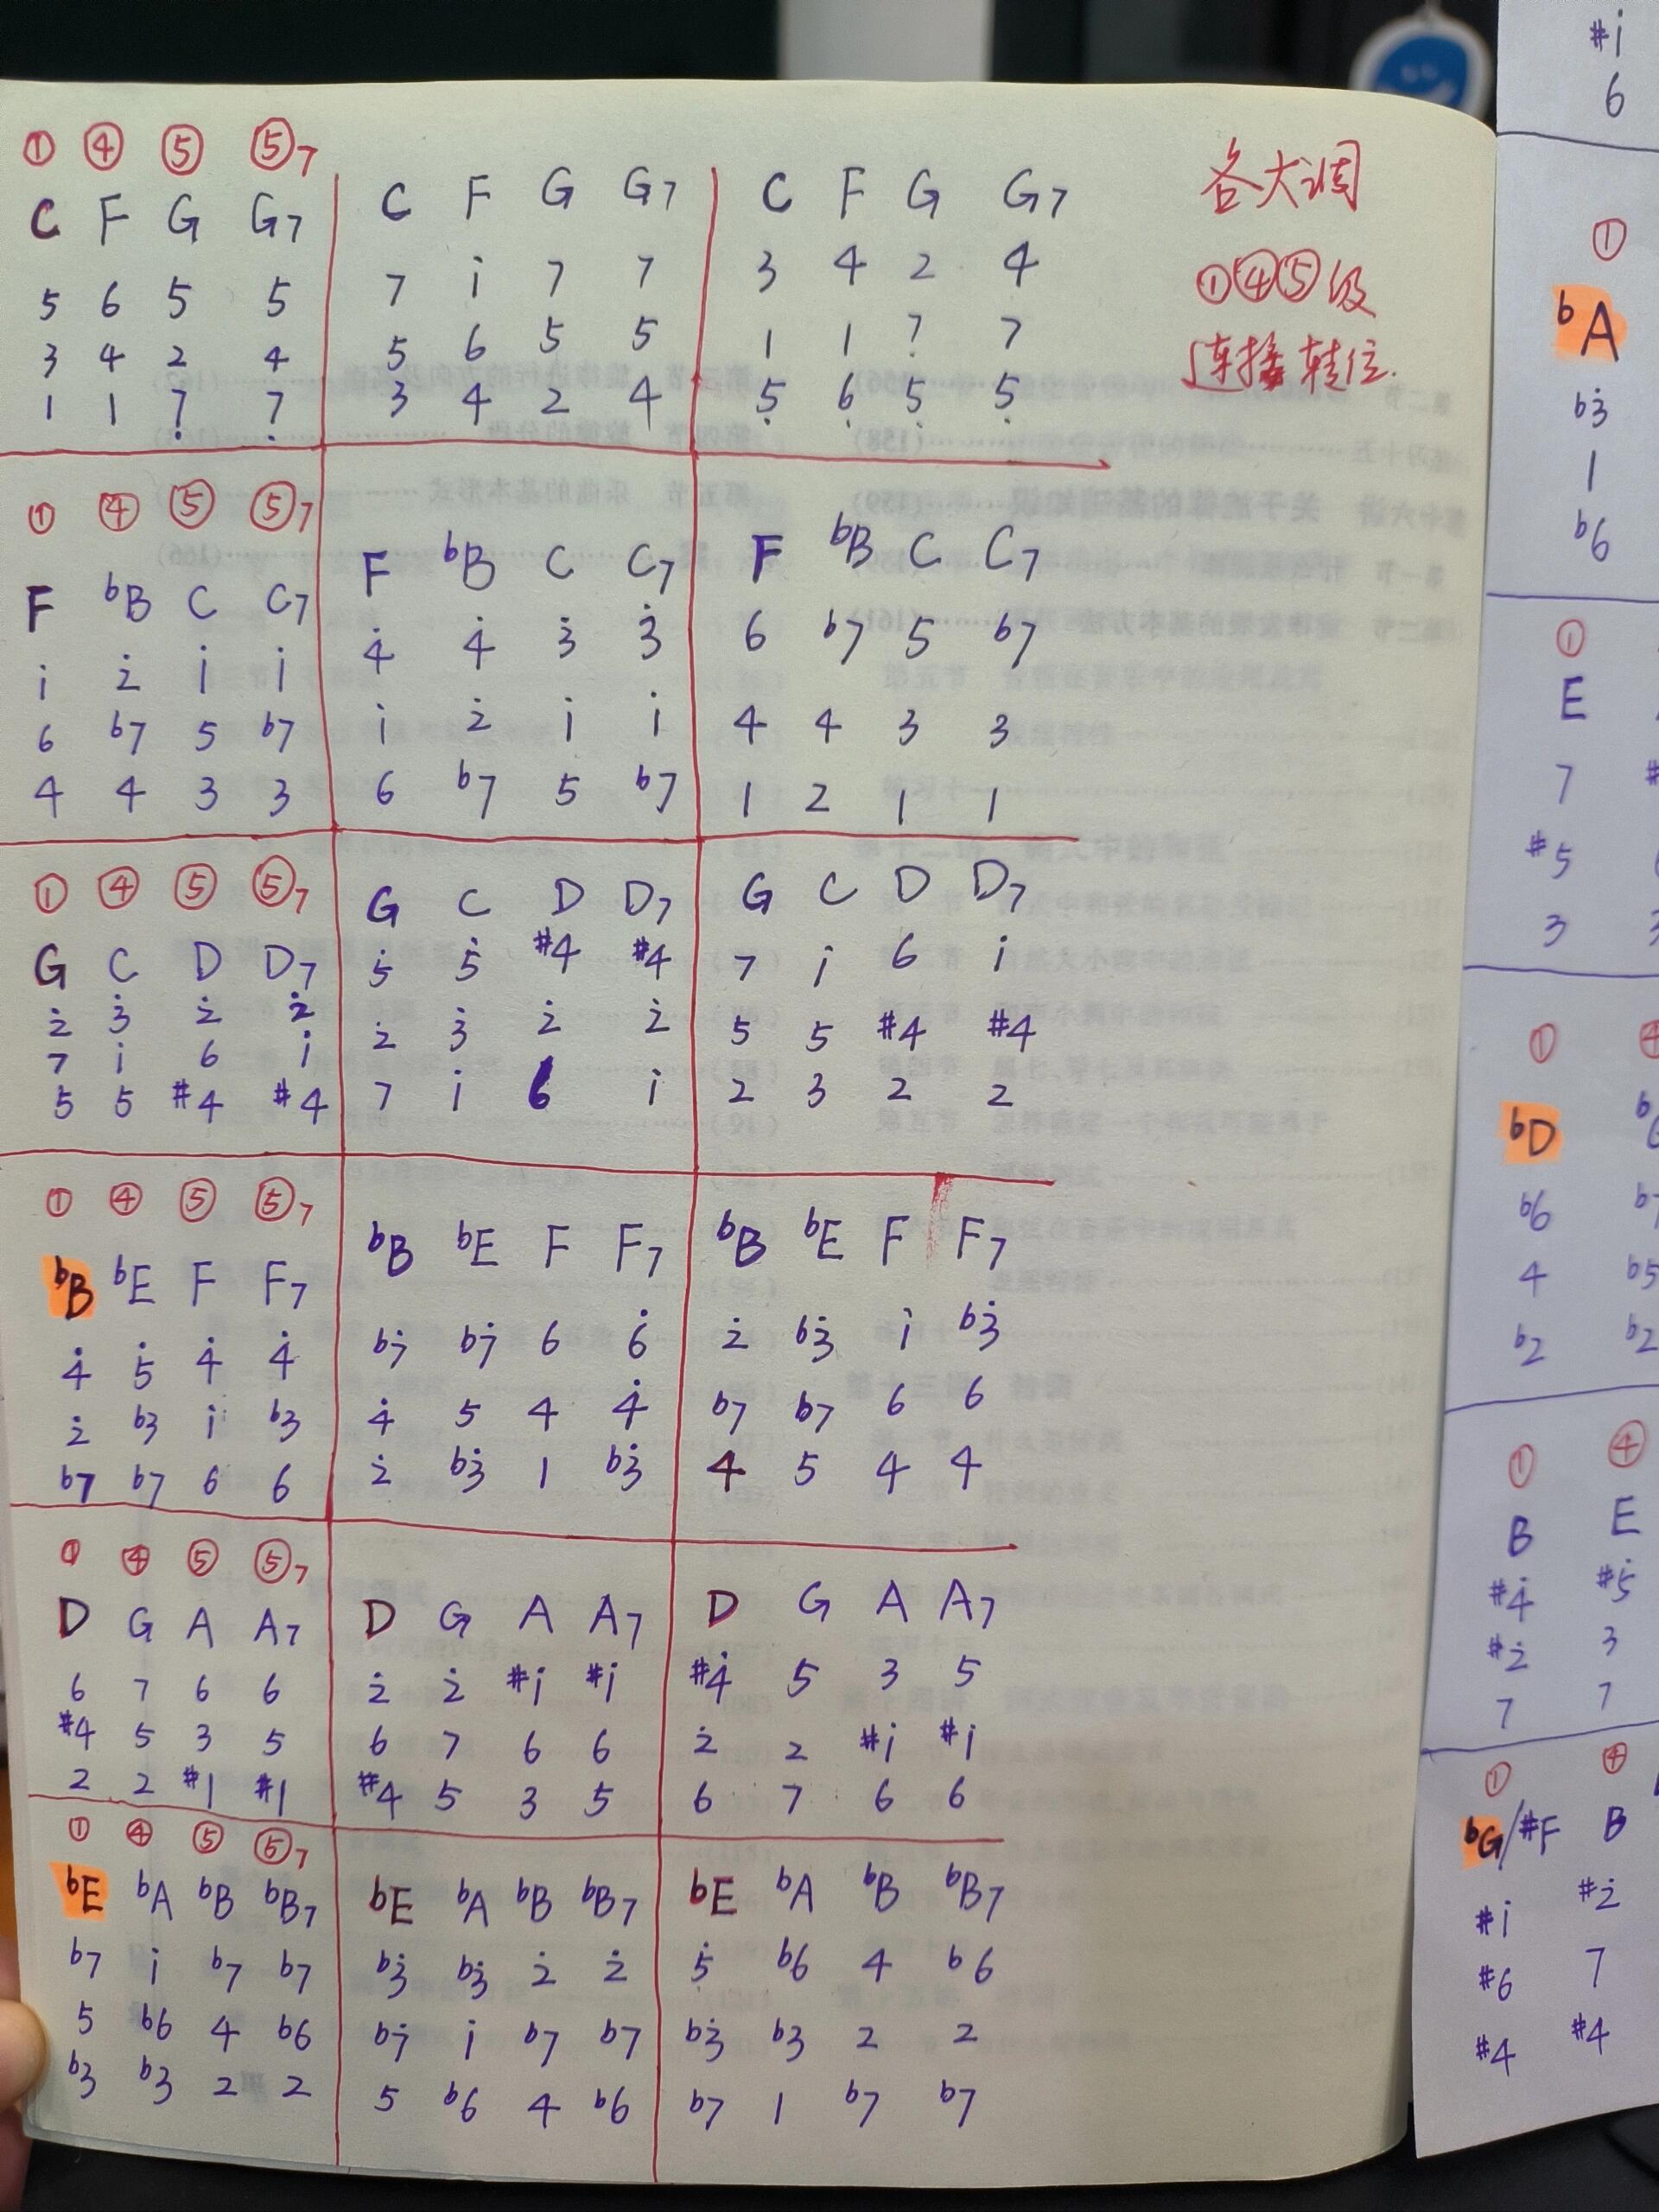 ① ④ ⑤ ⑤7
C F G G7
5 6 5 5
3 4 2 4
1 1 7̣ 7̣
C F G G7
7 i 7 7
5 6 5 5
3 4 2 4
C F G G7
3 4 2 4
1 1 7̣ 7
5̣ 6̣ 5̣ 5̣
各大调
①④⑤级
连接转位.
① ④ ⑤ ⑤7
F bB C C7
i 2̇ i i
6 b7 5 b7
4 4 3 3
F bB C C7
4̇ 4̇ 3̇ 3̇
i 2̇ i i
6 b7 5 b7
F bB C C7
6 b7 5 b7
4 4 3 3
1 2 1 1
① ④ ⑤ ⑤7
G C D D7
2̇ 3̇ 2̇ 2̇
7 i 6 i
5 5 #4 #4
G C D D7
5̇ 5̇ #4̇ #4̇
2̇ 3̇ 2̇ 2̇
7 i 6 i
G C D D7
7 i 6 i
5 5 #4 #4
2 3 2 2
① ④ ⑤ ⑤7
bB bE F F7
4̇ 5̇ 4̇ 4̇
2̇ b3 i b3
b7 b7 6 6
bB bE F F7
b7̇ b7̇ 6 6̇
4̇ 5 4 4̇
2̇ b3̇ 1 b3̇
bB bE F F7
2̇ b3̇ i b3̇
b7 b7 6 6
4 5 4 4
① ④ ⑤ ⑤7
D G A A7
6 7 6 6
#4 5 3 5
2 2 #1 #1
D G A A7
2̇ 2̇ #i #i
6 7 6 6
#4 5 3 5
D G A A7
#4̇ 5 3 5
2̇ 2 #i #i
6 7 6 6
① ④ ⑤ ⑤7
bE bA bB bB7
b7 i b7 b7
5 b6 4 b6
b3 b3 2 2
bE bA bB bB7
b3̇ b3̇ 2̇ 2̇
b7̇ i b7 b7
5 b6 4 b6
bE bA bB bB7
5̇ b6 4 b6
b3̇ b3 2 2
b7 1 b7 b7
#i
6
①
bA
b3̇
1
b6
①
E
7
#5
3
① ④
bD
b6
4 b5
b2 b2
① ④
B E
#4̇ #5̇
#2̇ 3
7 7
① ④
bG/#F B
#i #2̇
#6 7
#4 #4